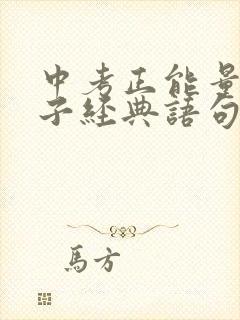 中考正能量
子經典語句
馬方